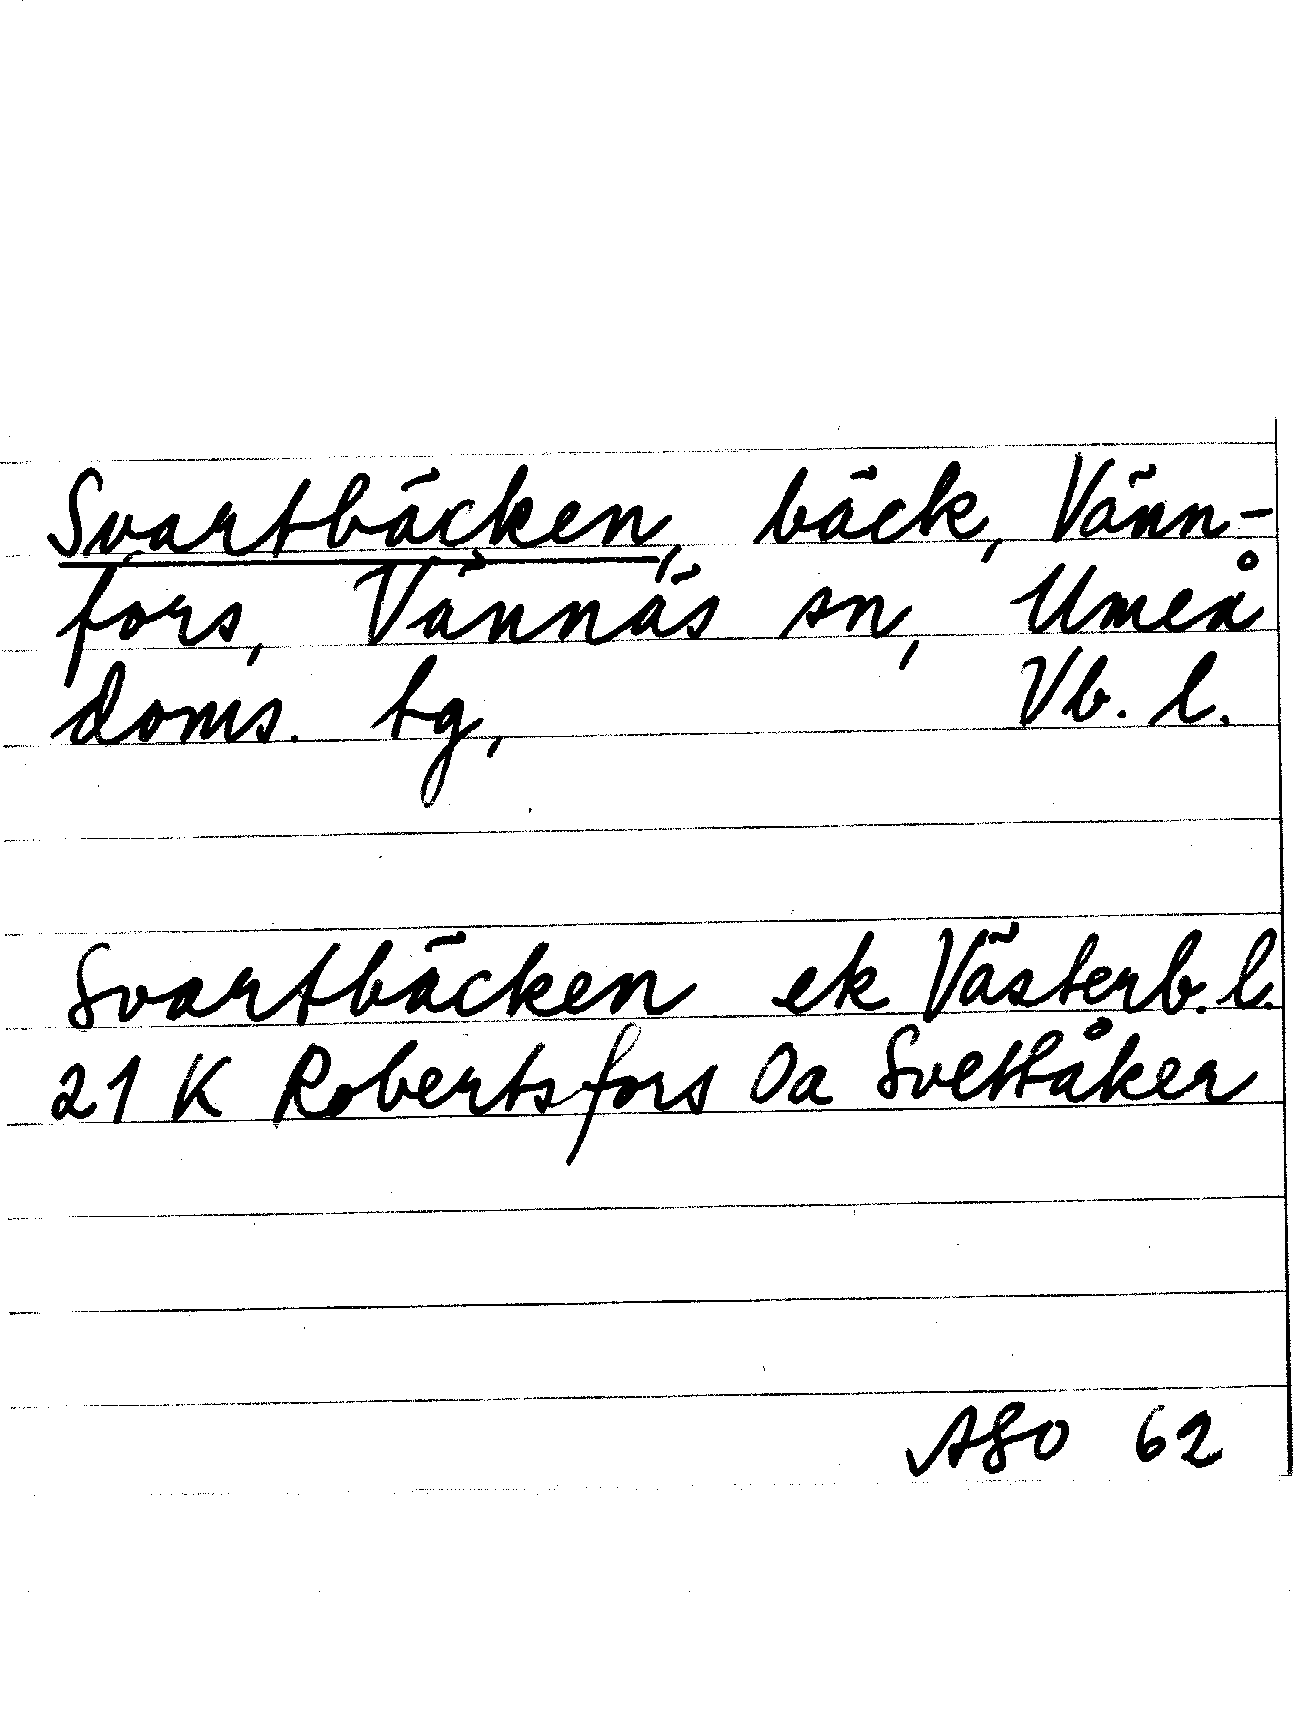 Svartbäcken, bäck, Vänn-
fors, Vännäs sn, Umeå
doms. tg, Vb. l.
Svartbäcken ek Västerb. l.
21 K Robertsfors Oa Svettåker
ASO 62